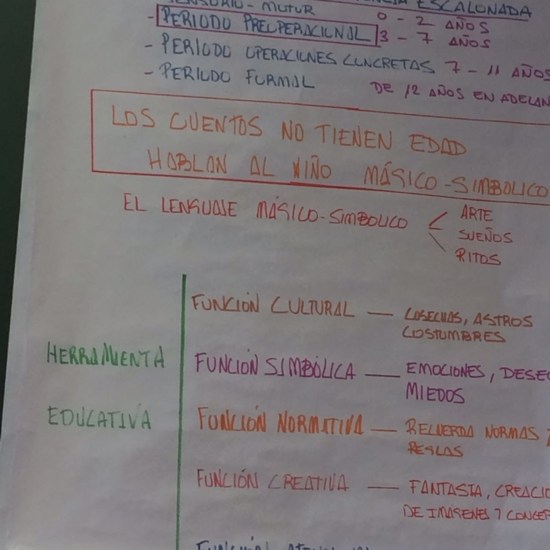 ESCALONADA
SENSORIO - MOTOR 0 - 2 AÑOS
- PERIODO PREOPERACIONAL 3 - 7 AÑOS
- PERIODO OPERACIONES CONCRETAS 7 - 11 AÑOS
- PERIODO FORMAL DE 12 AÑOS EN ADELAN
LOS CUENTOS NO TIENEN EDAD
HABLAN AL NIÑO MÁGICO-SIMBOLICO
EL LENGUAJE MÁGICO-SIMBOLICO
ARTE
SUEÑOS
RITOS
HERRAMIENTA
EDUCATIVA
FUNCIÓN CULTURAL — COSECHAS, ASTROS
COSTUMBRES
FUNCIÓN SIMBÓLICA — EMOCIONES, DESEO
MIEDOS
FUNCIÓN NORMATIVA — RECUERDA NORMAS Y
REGLAS
FUNCIÓN CREATIVA — FANTASIA, CREACIO
DE IMAGENES Y CONCEP